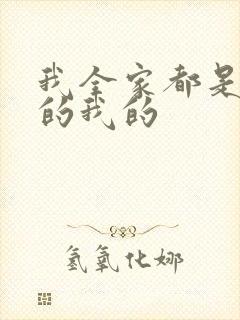 我全家都是
的我的
氢氧化娜